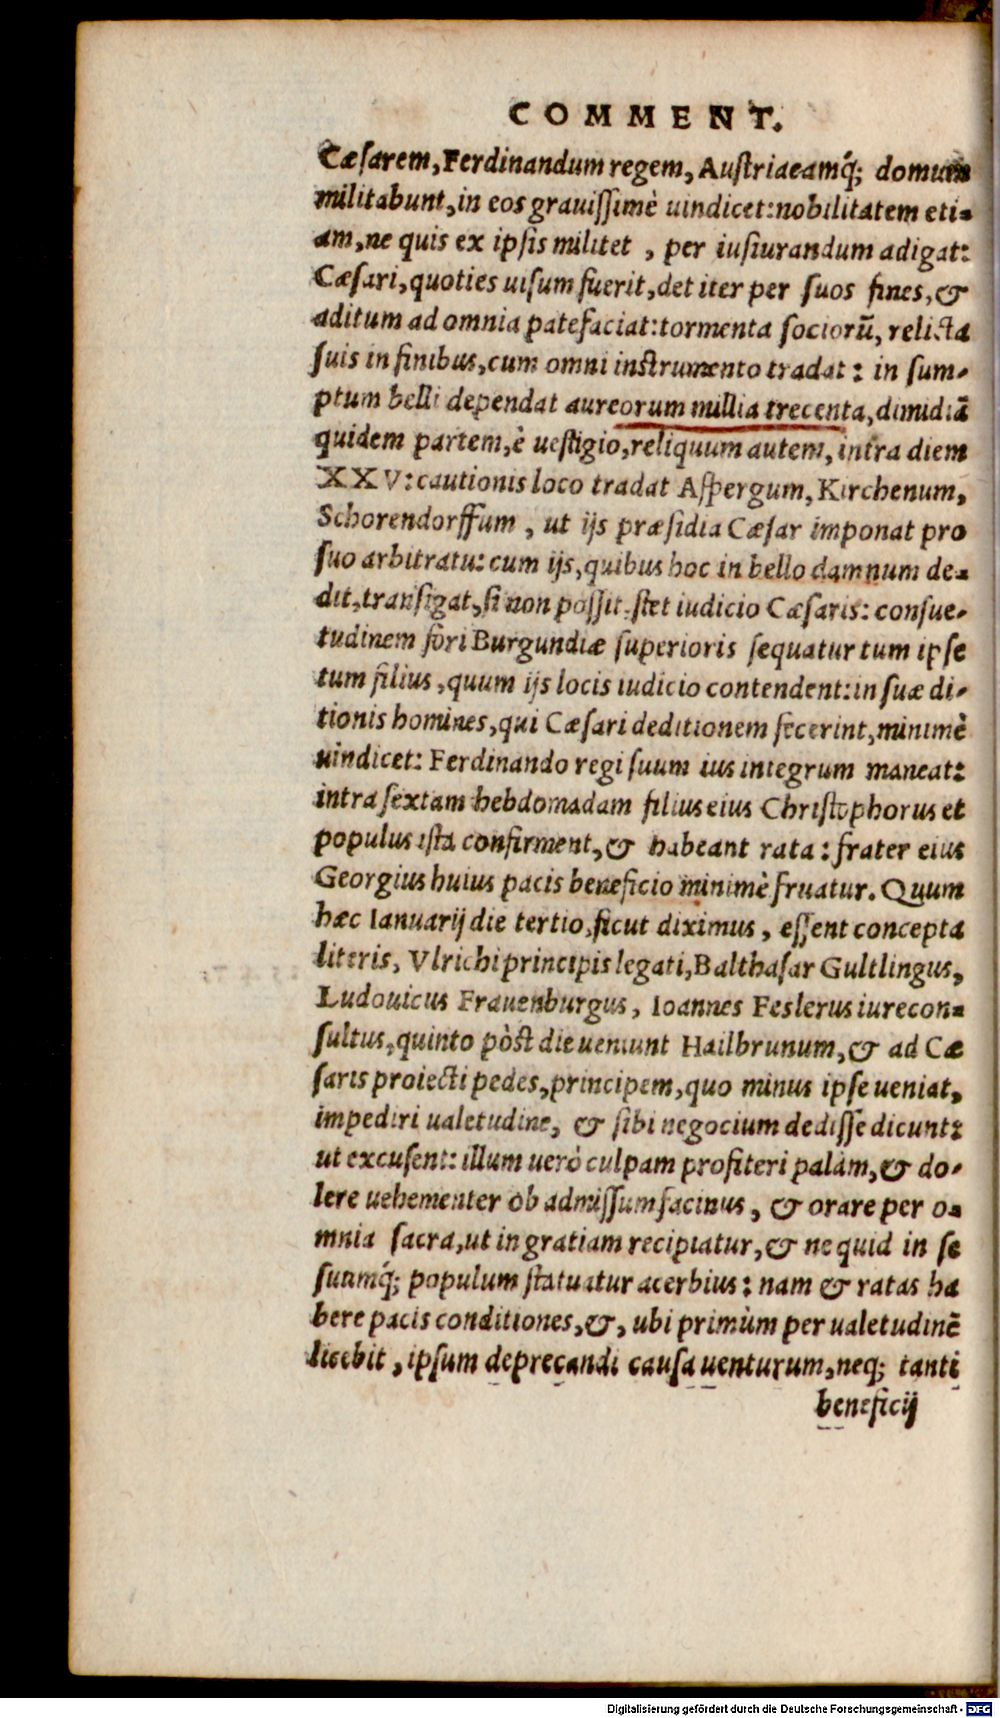 COMMENT.
Cæsarem, Ferdinandum regem, Austriaeamq́; domum
militabunt, in eos grauissimè uindicet: nobilitatem eti-
am, ne quis ex ipsis militet , per iusiurandum adigat:
Cæsari, quoties uisum fuerit, det iter per suos fines, &
aditum ad omnia patefaciat: tormenta sociorũ, relicta
suis in finibus, cum omni instrumento tradat : in sum-
ptum belli dependat aureorum millia trecenta, dimidiã
quidem partem, è uestigio, reliquum autem, intra diem
XXV: cautionis loco tradat Aspergum, Kirchenum,
Schorendorffum , ut ijs præsidia Cæsar imponat pro
suo arbitratu: cum ijs, quibus hoc in bello damnum de-
dit, transigat, si non possit, stet iudicio Cæsaris: consue-
tudinem fori Burgundiæ superioris sequatur tum ipse
tum filius , quum ijs locis iudicio contendent: in suæ di-
tionis homines, qui Cæsari deditionem fecerint, minimè
uindicet: Ferdinando regi suum ius integrum maneat:
intra sextam hebdomadam filius eius Christophorus et
populus ista confirment, & habeant rata : frater eius
Georgius huius pacis beneficio minimè fruatur. Quum
hæc Ianuarij die tertio, sicut diximus , essent concepta
literis, Vlrichi principis legati, Balthasar Gultlingus,
Ludouicus Frauenburgus , Ioannes Feslerus iurecon-
sultus, quinto pòst die ueniunt Hailbrunum, & ad Cæ
saris proiecti pedes, principem, quo minus ipse ueniat,
impediri ualetudine, & sibi negocium dedisse dicunt:
ut excusent: illum uerò culpam profiteri palàm, & do-
lere uehementer ob admissum facinus , & orare per o-
mnia sacra, ut in gratiam recipiatur, & ne quid in se
suumq́; populum statuatur acerbius : nam & ratas ha
bere pacis conditiones, &, ubi primùm per ualetudinẽ
licebit , ipsum deprecandi causa uenturum, neq; tanti
beneficij
Digitalisierung gefördert durch die Deutsche Forschungsgemeinschaft - DFG